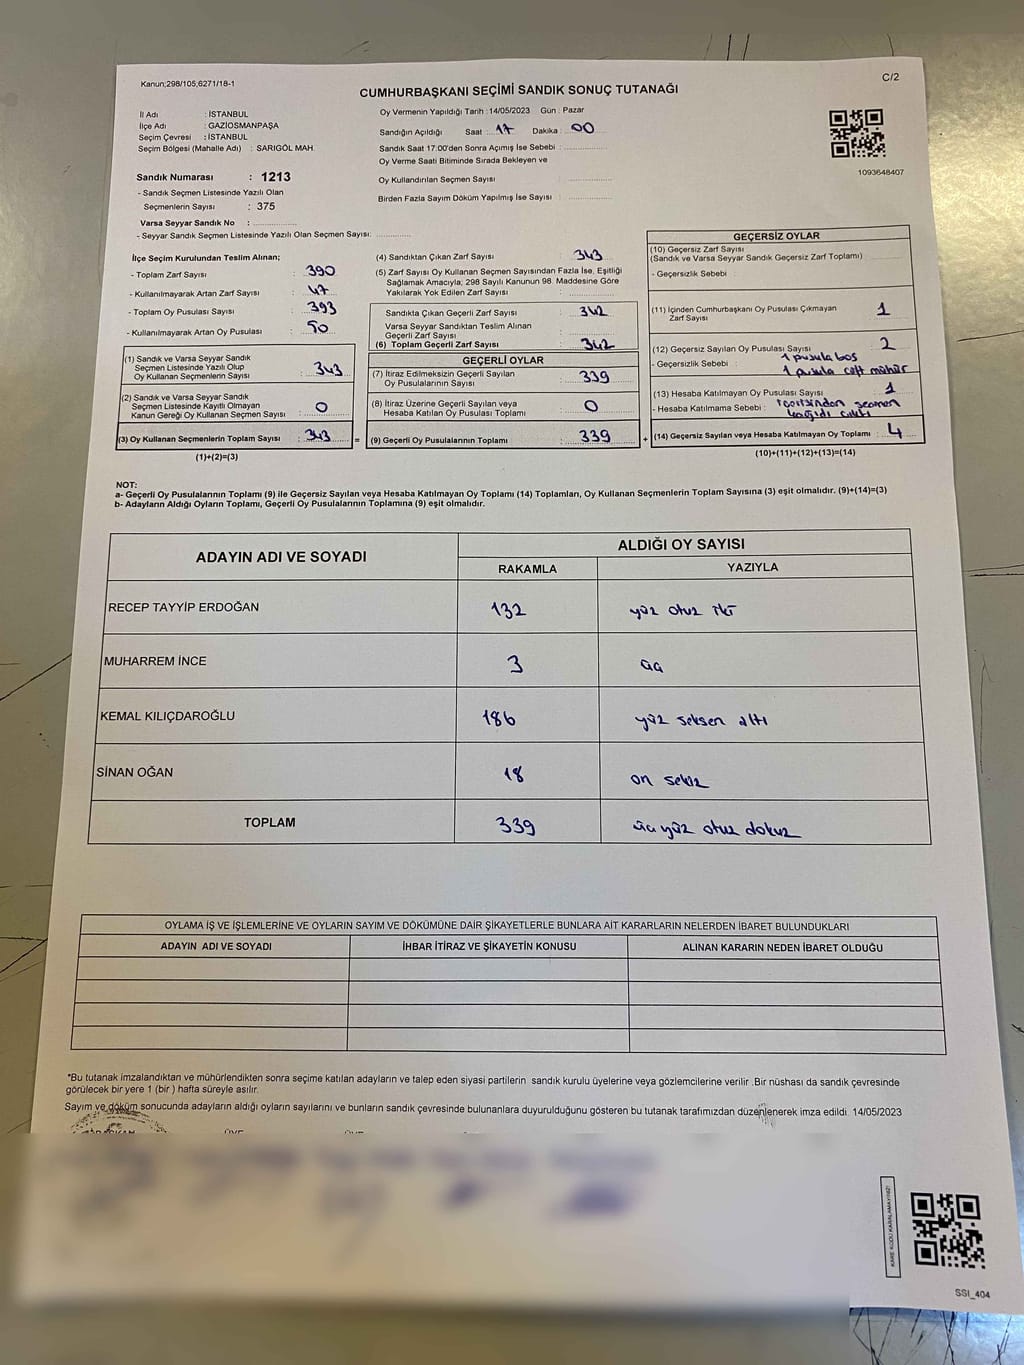 Kanun;298/105,6271/18-1
C/2
CUMHURBAŞKANI SEÇİMİ SANDIK SONUÇ TUTANAĞI
İl Adı : İSTANBUL
İlçe Adı : GAZİOSMANPAŞA
Seçim Çevresi : İSTANBUL
Seçim Bölgesi (Mahalle Adı) : SARIGÖL MAH.
Sandık Numarası : 1213
- Sandık Seçmen Listesinde Yazılı Olan
Seçmenlerin Sayısı : 375
Varsa Seyyar Sandık No :
- Seyyar Sandık Seçmen Listesinde Yazılı Olan Seçmen Sayısı:
Oy Vermenin Yapıldığı Tarih :14/05/2023 Gün : Pazar
Sandığın Açıldığı Saat : 17 Dakika : 00
Sandık Saat 17:00'den Sonra Açımış İse Sebebi :
Oy Verme Saati Bitiminde Sırada Bekleyen ve
Oy Kullandırılan Seçmen Sayısı
Birden Fazla Sayım Döküm Yapılmış İse Sayısı :
1093648407
İlçe Seçim Kurulundan Teslim Alınan;
- Toplam Zarf Sayısı : 390
- Kullanılmayarak Artan Zarf Sayısı : 47
- Toplam Oy Pusulası Sayısı : 393
- Kullanılmayarak Artan Oy Pusulası : 50
(1) Sandık ve Varsa Seyyar Sandık
Seçmen Listesinde Yazılı Olup
Oy Kullanan Seçmenlerin Sayısı : 343
(2) Sandık ve Varsa Seyyar Sandık
Seçmen Listesinde Kayıtlı Olmayan
Kanun Gereği Oy Kullanan Seçmen Sayısı : 0
(3) Oy Kullanan Seçmenlerin Toplam Sayısı : 343
(1)+(2)=(3)
(4) Sandıktan Çıkan Zarf Sayısı : 343
(5) Zarf Sayısı Oy Kullanan Seçmen Sayısından Fazla İse, Eşitliği
Sağlamak Amacıyla; 298 Sayılı Kanunun 98. Maddesine Göre
Yakılarak Yok Edilen Zarf Sayısı :
Sandıkta Çıkan Geçerli Zarf Sayısı : 342
Varsa Seyyar Sandıktan Teslim Alınan
Geçerli Zarf Sayısı :
(6) Toplam Geçerli Zarf Sayısı : 342
GEÇERLİ OYLAR
(7) İtiraz Edilmeksizin Geçerli Sayılan
Oy Pusulalarının Sayısı : 339
(8) İtiraz Üzerine Geçerli Sayılan veya
Hesaba Katılan Oy Pusulası Toplamı : 0
= (9) Geçerli Oy Pusulalarının Toplamı : 339
GEÇERSİZ OYLAR
(10) Geçersiz Zarf Sayısı
(Sandık ve Varsa Seyyar Sandık Geçersiz Zarf Toplamı)
- Geçersizlik Sebebi :
(11) İçinden Cumhurbaşkanı Oy Pusulası Çıkmayan
Zarf Sayısı : 1
(12) Geçersiz Sayılan Oy Pusulası Sayısı : 2
- Geçersizlik Sebebi : 1 pusula boş
1 pusula çift mühür
(13) Hesaba Katılmayan Oy Pusulası Sayısı : 1
- Hesaba Katılmama Sebebi : içerisinden seçmen
kağıdı çıktı
+ (14) Geçersiz Sayılan veya Hesaba Katılmayan Oy Toplamı : 4
(10)+(11)+(12)+(13)=(14)
NOT:
a- Geçerli Oy Pusulalarının Toplamı (9) ile Geçersiz Sayılan veya Hesaba Katılmayan Oy Toplamı (14) Toplamları, Oy Kullanan Seçmenlerin Toplam Sayısına (3) eşit olmalıdır. (9)+(14)=(3)
b- Adayların Aldığı Oyların Toplamı, Geçerli Oy Pusulalarının Toplamına (9) eşit olmalıdır.
ADAYIN ADI VE SOYADI
ALDIĞI OY SAYISI
RAKAMLA YAZIYLA
RECEP TAYYİP ERDOĞAN 132 yüz otuz iki
MUHARREM İNCE 3 üç
KEMAL KILIÇDAROĞLU 186 yüz seksen altı
SİNAN OĞAN 18 on sekiz
TOPLAM 339 üç yüz otuz dokuz
OYLAMA İŞ VE İŞLEMLERİNE VE OYLARIN SAYIM VE DÖKÜMÜNE DAİR ŞİKAYETLERLE BUNLARA AİT KARARLARIN NELERDEN İBARET BULUNDUKLARI
ADAYIN ADI VE SOYADI İHBAR İTİRAZ VE ŞİKAYETİN KONUSU ALINAN KARARIN NEDEN İBARET OLDUĞU
*Bu tutanak imzalandıktan ve mühürlendikten sonra seçime katılan adayların ve talep eden siyasi partilerin sandık kurulu üyelerine veya gözlemcilerine verilir .Bir nüshası da sandık çevresinde
görülecek bir yere 1 (bir ) hafta süreyle asılır.
Sayım ve döküm sonucunda adayların aldığı oyların sayılarını ve bunların sandık çevresinde bulunanlara duyurulduğunu gösteren bu tutanak tarafımızdan düzenlenerek imza edildi. 14/05/2023
KARE KODU KARALAMAYINIZ!
SSI_404